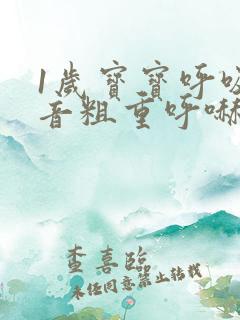 1歲寶寶呼吸
音粗重呼嚇
查喜臨
未经同意禁止转载